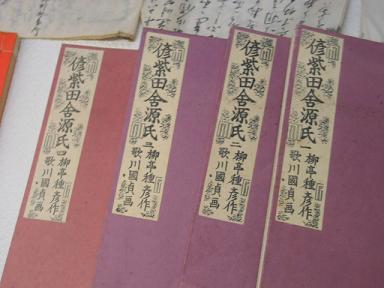 偐紫田舎源氏 一 柳亭種彦作
歌川國貞画
偐紫田舎源氏 二 柳亭種彦作
歌川國貞画
偐紫田舎源氏 三 柳亭種彦作
歌川國貞画
偐紫田舎源氏 四 柳亭種彦作
歌川國貞画